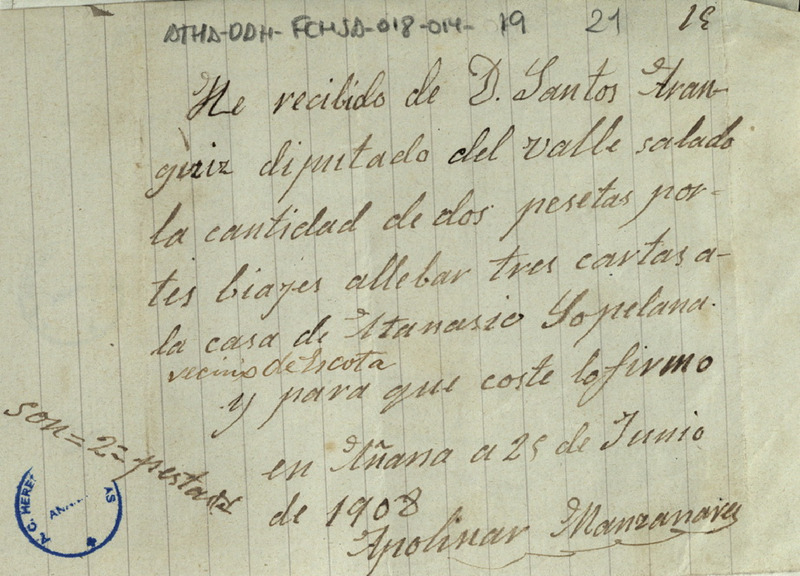 ATHA-DDH-FCHSA-018-014- 19 21 19
He recibido de D. Santos Aran-
guiz diputado del valle salado
la cantidad de dos pesetas por-
tes biajes allebar tres cartas a-
la casa de Atanasio Sopelana.
vecino de Escota
y para que coste lo firmo
son = 2 = pestas
en Añana a 25 de Junio
de 1908
Apolinar Manzanares